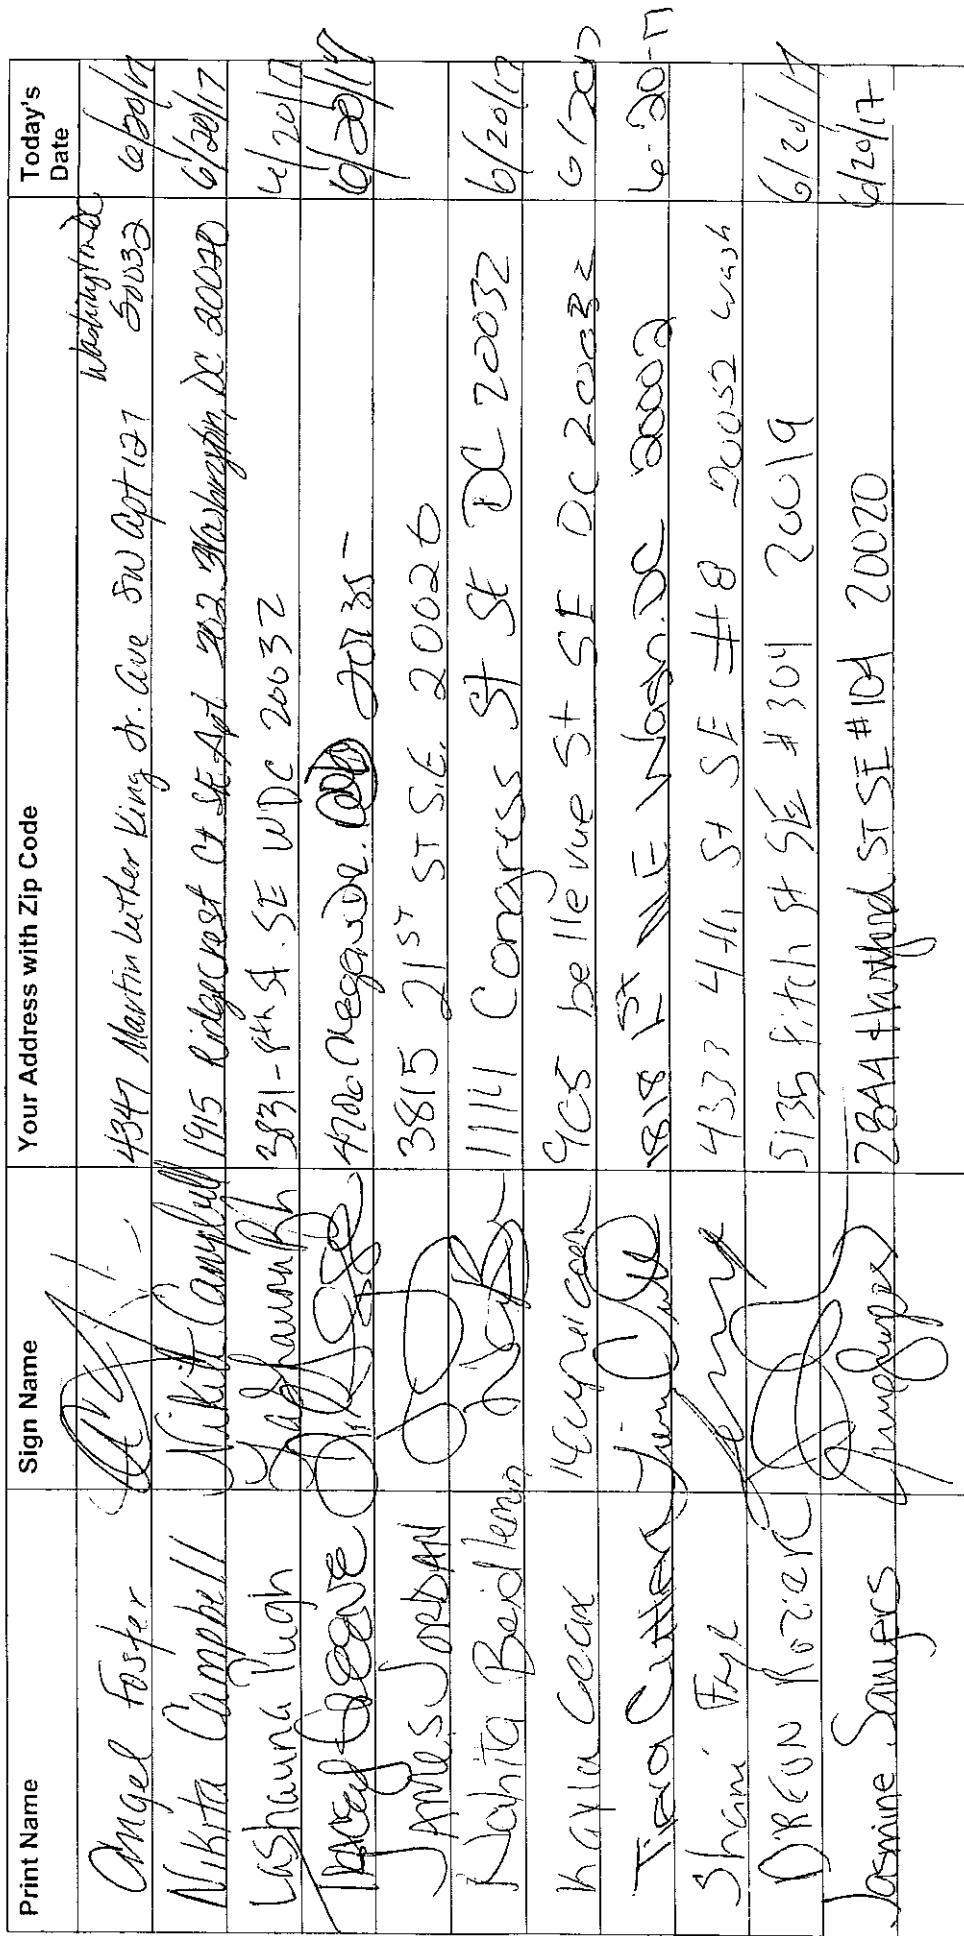 Print Name Sign Name Your Address with Zip Code Today's Date
Angel Foster 4347 Martin Luther King Jr. Ave SW Apt 127 Washington DC 20032 6/20/17
Nikita Campbell Nikita Campbell 1915 Ridgecrest Ct SE Apt 202 Washington, DC 20020 6/20/17
LaShauna Pugh LaShauna Pugh 3831-8th St. SE WDC 20032 6/20/17
Tracey Greene 6/20/17
James Jordan 3815 21st ST S.E. 20020
Nahita Beidleman 1114 Congress St SE DC 20032 6/20/17
Kayla 905 bellevue St SE DC 20032 6/20/17
Tiera Cutter 1818 1st NE Wash. DC 20002 6-20-17
Shani Frye 4337 4th St SE #8 20032 Wash
DREUN ROZIER 5135 Fitch St SE #304 20019 6/20/17
Jasmine Sanders 2844 Hartford ST SE #104 20020 6/20/17